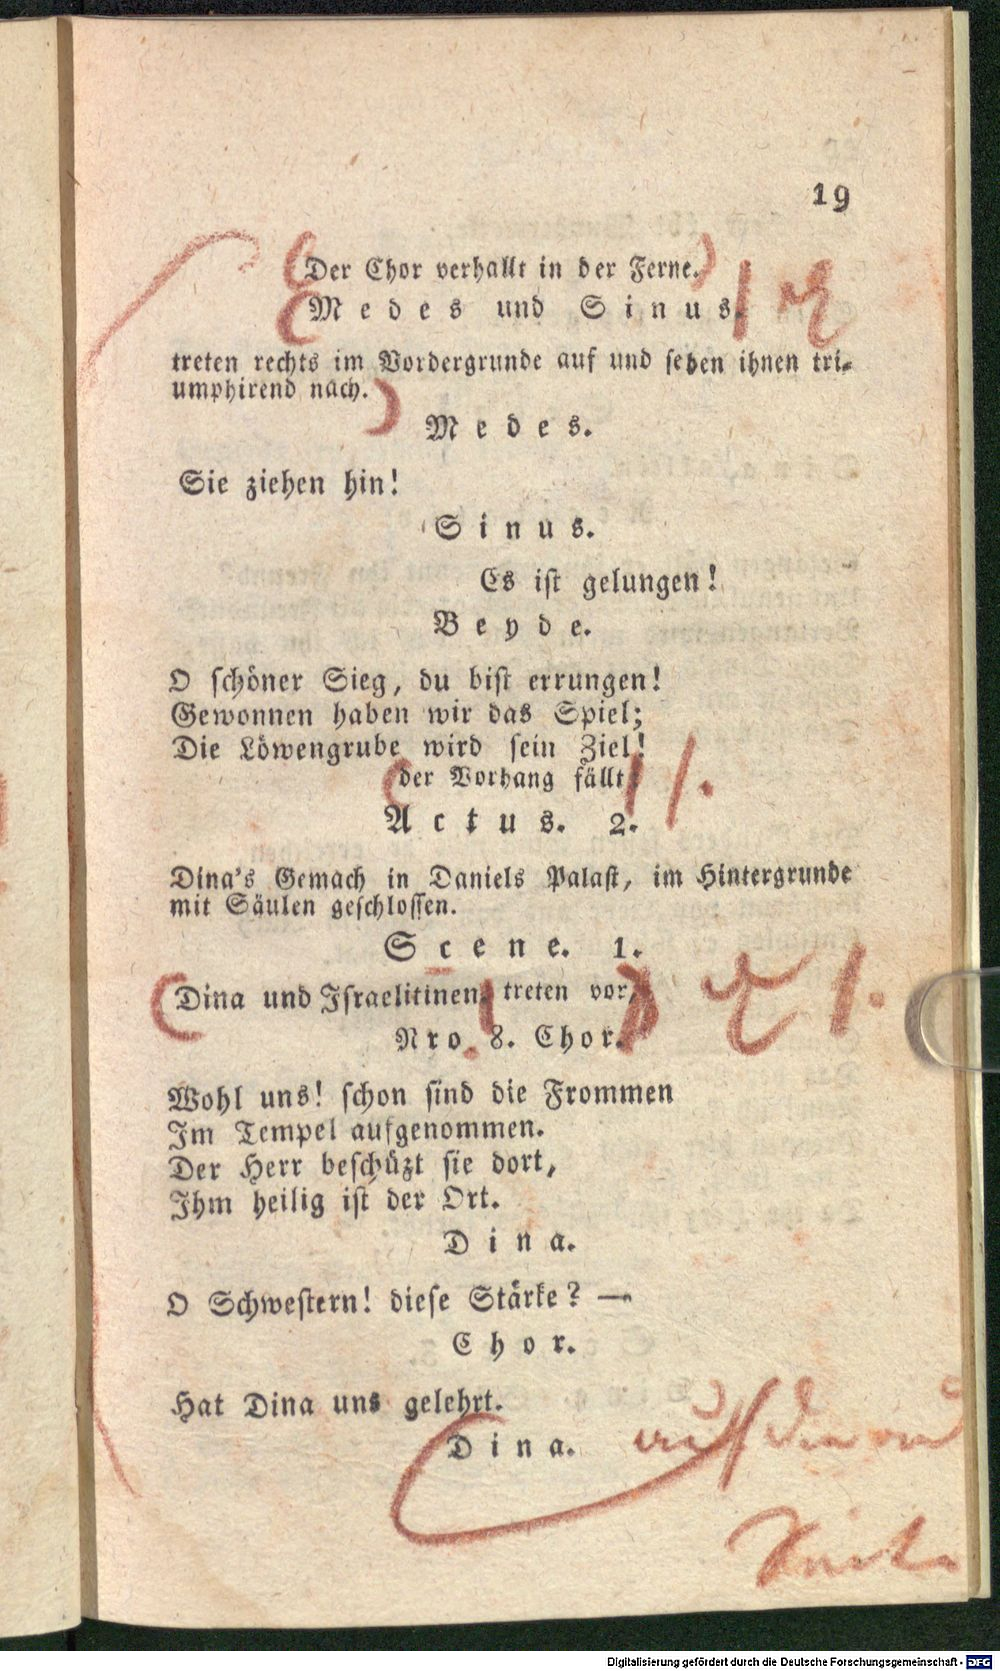 19
Der Chor verhallt in der Ferne.
Medes und Sinus.
treten rechts im Vordergrunde auf und sehen ihnen tri-
umphirend nach.
Medes.
Sie ziehen hin!
Sinus.
Es ist gelungen!
Beyde.
O schöner Sieg, du bist errungen!
Gewonnen haben wir das Spiel;
Die Löwengrube wird sein Ziel!
der Vorhang fällt.
Actus. 2.
Dina's Gemach in Daniels Palast, im Hintergrunde
mit Säulen geschlossen.
Scene. 1.
Dina und Israelitinen, treten vor,
Nro. 8. Chor.
Wohl uns! schon sind die Frommen
Im Tempel aufgenommen.
Der Herr beschüzt sie dort,
Ihm heilig ist der Ort.
Dina.
O Schwestern! diese Stärke? —
Chor.
Hat Dina uns gelehrt.
Dina.
auf die
Seite
Digitalisierung gefördert durch die Deutsche Forschungsgemeinschaft - DFG